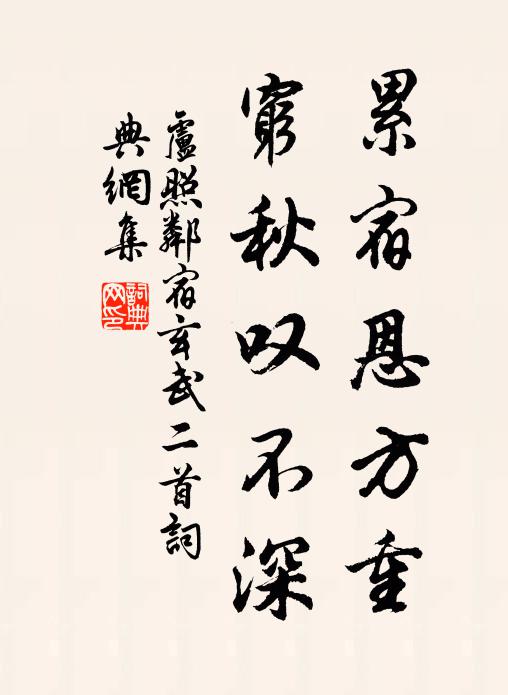 累宿恩方重
窮秋叹不深
盧照鄰宿玄武二首詞
典網集
詞典网印